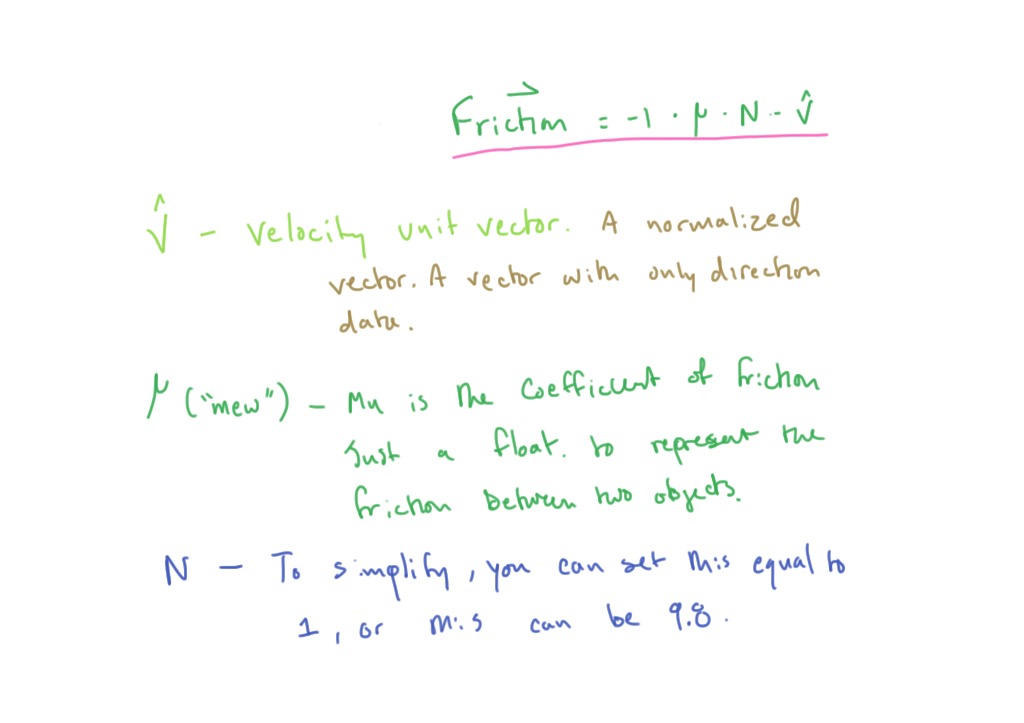 Friction = -1 · μ · N · v̂
v̂ - Velocity unit vector. A normalized
vector. A vector with only direction
data.
μ ("mew") - Mu is the coefficient of friction
Just a float. to represent the
friction between two objects.
N - To simplify, you can set this equal to
1, or this can be 9.8.